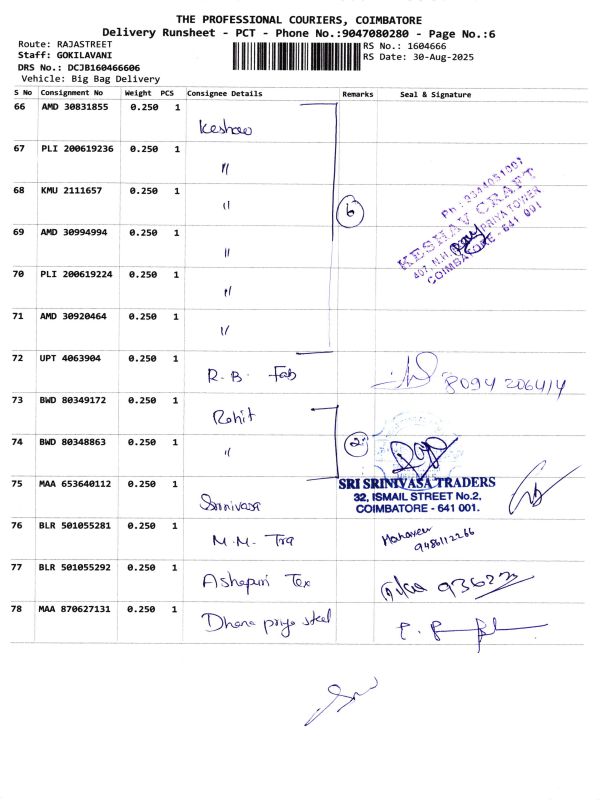 THE PROFESSIONAL COURIERS, COIMBATORE
Delivery Runsheet - PCT - Phone No.:9047080280 - Page No.:6
Route: RAJASTREET
RS No.: 1604666
Staff: GOKILAVANI
RS Date: 30-Aug-2025
DRS No.: DCJB160466606
Vehicle: Big Bag Delivery
S No Consignment No Weight PCS Consignee Details Remarks Seal & Signature
66 AMD 30831855 0.250 1 Keshav
67 PLI 200619236 0.250 1 "
68 KMU 2111657 0.250 1 "
6
Ph : 9344051001
KESHAV CRAFT
COIMBATORE - 641 001
69 AMD 30994994 0.250 1 "
70 PLI 200619224 0.250 1 "
71 AMD 30920464 0.250 1 "
72 UPT 4063904 0.250 1 R.B. Fab 8094206414
73 BWD 80349172 0.250 1 Rohit
74 BWD 80348863 0.250 1 " 2
75 MAA 653640112 0.250 1 Srinivasa
SRI SRINIVASA TRADERS
32, ISMAIL STREET No.2,
COIMBATORE - 641 001.
76 BLR 501055281 0.250 1 M.M. Tra
9486112266
77 BLR 501055292 0.250 1 Ashapuri Tex
78 MAA 870627131 0.250 1 Dhana priya steel